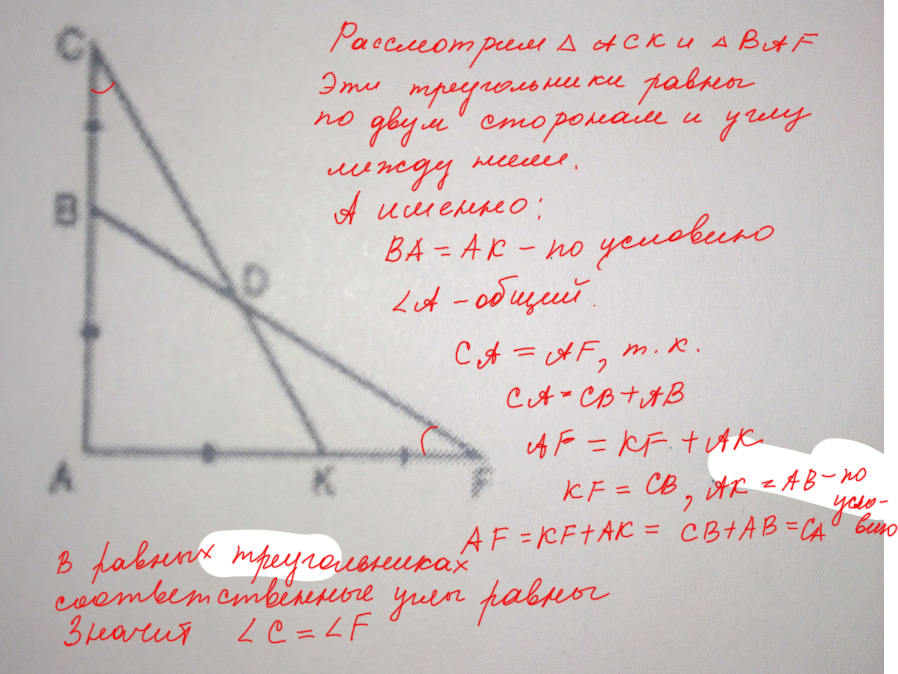 C
B
D
A
K
F
Рассмотрим △ ACK и △ BAF
Эти треугольники равны
по двум сторонам и углу
между ними.
А именно:
BA = AK – по условию
∠A – общий.
CA = AF, т.к.
CA = CB + AB
AF = KF + AK
KF = CB, AK = AB – по
усло-
AF = KF + AK = CB + AB = CA вию
В равных треугольниках
соответственные углы равны
Значит ∠C = ∠F